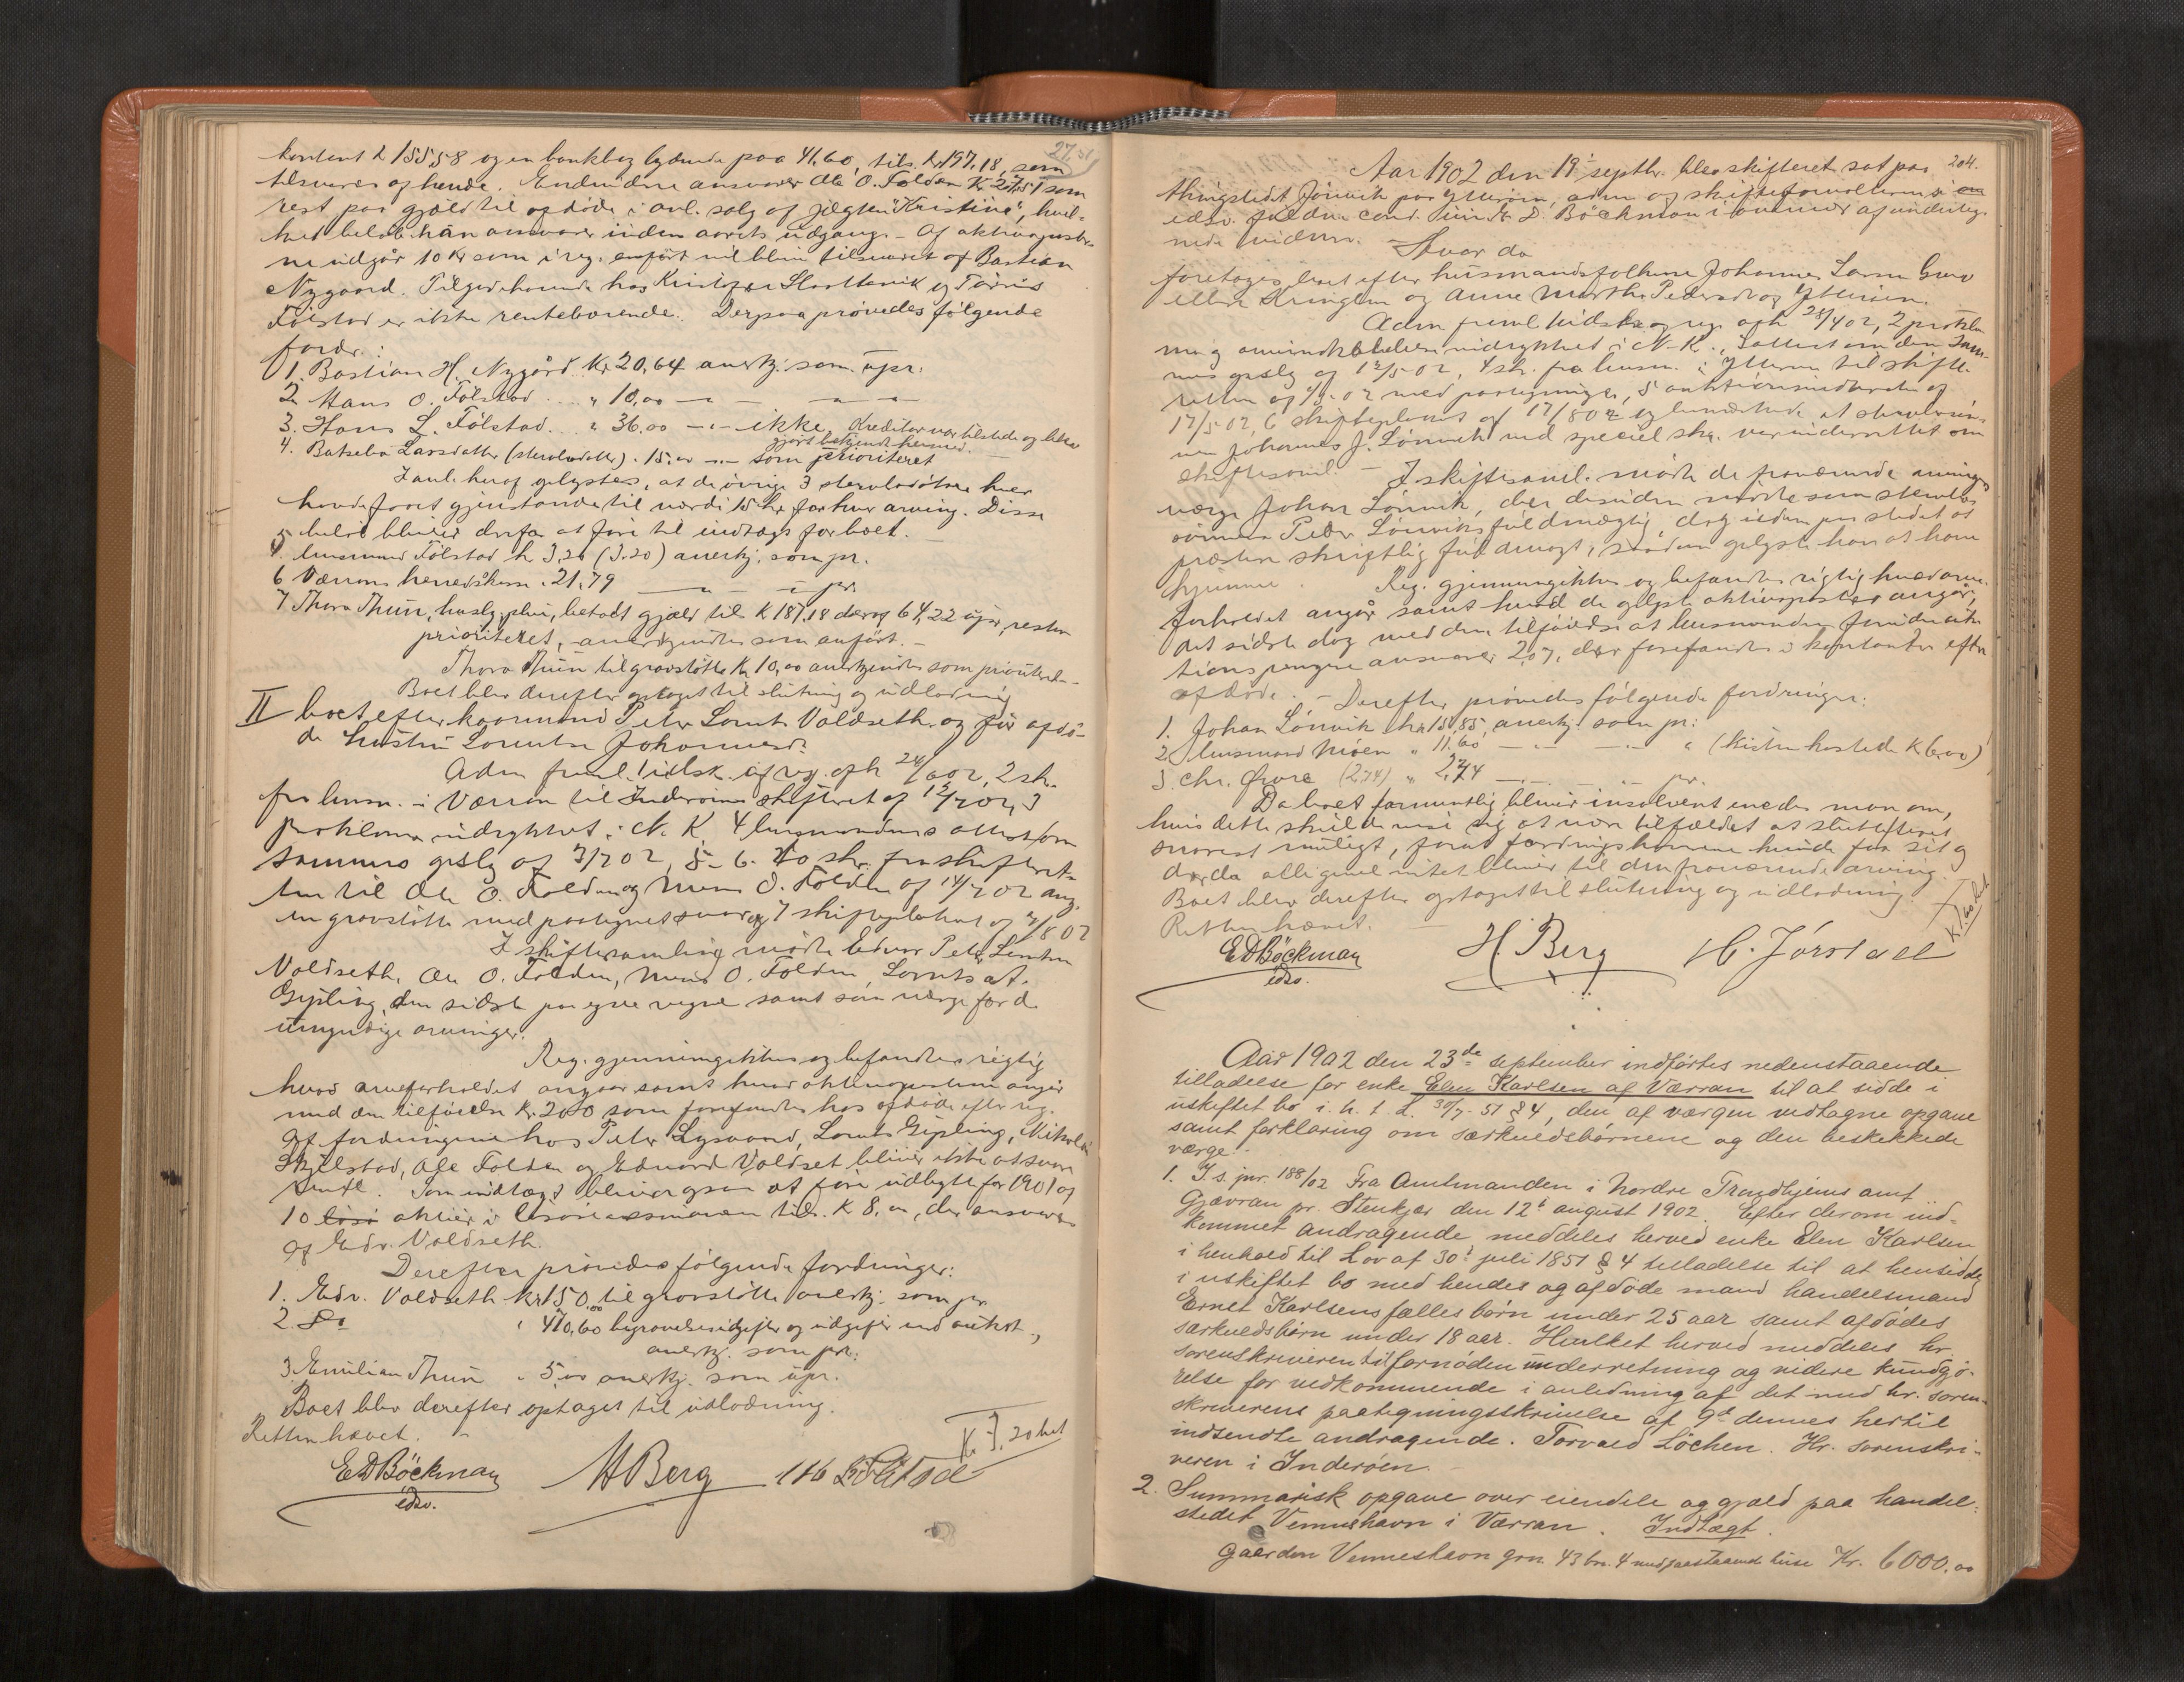 kontant k 155.58 og en bankbog lydende paa 41.60, tils. kr 197.18, som
tilsvares af hende. Endvidere ansvarer Ole O. Folden K 27.51 som
rest paa gjæld til afdøde i anl. salg af jægten "Kristine", hvil-
ket beløb han ansvarer inden aarets udgang. - Af aktivaposte-
ne udgår 10 Kr som i reg. anført vil blive tilsvaret af Bastian
Nygaard. Tilgodehavende hos Kristofer og
Følstad er ikke rentebærende. Derpaa prøvedes følgende
fordr.:
1. Bastian H. Nygård Kr 20,64 anerkj. som upr.
2. Hans O. Følstad " 10,00 -"- -"-
3. Hans L. Følstad " 36.00 -"- ikke. Kreditor var tilstede og blev
gjort bekjendt hermed.
4. Batseba Larsdatter (stervbodatter) . 15.00 -"- som prioriteret
I anl. heraf oplystes, at de øvrige 3 stervbodøtre hver
havde faaet gjenstande til værdi 15 kr for hver arving. Disse
beløb bliver derfor at føre til indtægt for boet. -
5. lensmand Følstad k 3.20 (3.20) anerkj. som pr.
6 Værrans herredskasse " 21,79 -"- - pr
7 Thora Thun, husly, pleie, betalt gjæld til K 187.18 deraf 64,22 upr, resten
prioriteret, - anerkjendtes som anført. -
Thora Thun til gravstøtte Kr 10,00 anerkjendtes som prioriteret -
Boet blev derefter optaget til slutning og udlodning
II boet efter kaarmand Peter Lornts Voldseth og før afdø-
de hustru Lorentse Johannesd:
Adm freml. 1 udsk. af reg. afh 24/6 02, 2 skr.
fra lensm. i Værran til Inderøens skifteret af 12/7 02, 3
proklama indrykket i N. K. 4 lensmandens attest om
sammes oplæs af 3/7 02, 5- 6. to skr. fra skifteret-
ten til Ole O. Folden og Mens O. Folden af 14/7 02 ang.
en gravstøtte med paategnet svar og 7 skifteplakat af /8 02
I skiftesamling mødte Edvar Peter Lorntsen
Voldseth, Ole O. Folden, Mens O. Folden, Lornts At.
Gipling, den sidste paa egne vegne samt som værge for de
umyndige arvinger.
Reg. gjennemgikkes og befandtes rigtig
hvad arveforholdet angaar samt hvad aktivaposterne angår
med den tilføielse Kr. 2.00 som forefandtes hos afdøde efter reg.
Af fordringerne hos Peter Lysvand, Lornts Gipling, Nikolai
Skjelstad, Ole Folden og Edvard Voldset bliver ikke at svare
rente. Som indtægt bliver ogsaa at føre udbytte for 1901 af
10 aktier i tils. K 8.00, der ansvares
af Edv. Voldseth.
Derefter prøvedes følgende fordringer:
1. Edv. Voldseth Kr 150,00 til gravstøtte anerkj. som pr
2. Do " 410,60 begravelsesudgifter og udgifter ved auktion,
anerkj. som pr.
3. Emilian Thun " 5,00 anerkj. som upr.
Boet blev derefter optaget til udlodning.
Retten hævet. -
K. 3,20 bet
EDBöckman HBerg HL Følstad
edsv.
204.
Aar 1902 den 19' septbr. blev skifteret sat paa
thingstedet Jønvik paa Ytterøen, adm og skifteforvalteren i
edsv. fuldm cand. jur. E. D. Böckman i overvær af underteg-
nede vidner. Hvor da
foretoges boet efter husmandsfolkene Johannes Larsen
eller Kringlen og Anne Marthe Pedersdtr af Ytterøen.
Adm freml 1 udskr af reg afh 28/4 02, 2 prokla-
ma og arveindkaldelse indrykket i N-K., 3 attest om den sam-
mes oplæs af 12/5 02, 4 skr. fra lensm. i Ytterøen til skifte-
retten af /5 02 med paategninger, 5 auktionsudskrift af
17/5 02, 6 skifteplakat af 17/8 02 og bemærkede at stervbosøn-
nen Johannes J. Lønvik ved speciel skr. var underrettet om
skiftesaml. - I skiftesaml. mødte de fraværende arvinges
værge Johan Lønvik, der desuden mødte som stervbo-
sønnen Peter Lønviks fuldmægtig, dog uden paa stedet at
præstere skriftlig fuldmagt, sådan oplyste han at have
hjemme. Reg. gjennemgikkes og befandtes rigtig hvad arve-
forholdet angår samt hvad de oplyste aktivaposter angår,
det sidste dog med den tilføielse at lensmanden foruden auk-
tionspengene ansvarer 2,07, der forefandtes i kontanter efter
afdøde. - Derefter prøvedes følgende fordringer:
1. Johan Lønvik kr 151,85, anerkj. som pr:
2. lensmand Moen " 11.60 -"- -"- " (kisten kostede K 6,00)
3 Chr. Øvre (2,74) " 2,74 -"- -"- pr.
Da boet formentlig bliver insolvent enedes man om,
hvis dette skulde vise sig at være tilfældet at slutte boet
snarest muligt, forat fordringshaverne kunde faa sit og
da alligevel intet bliver til den fraværende arving.
Boet blev derefter optaget til slutning og udlodning.
Retten hævet. -
EDBöckman H. Berg H. Jørstad
edsv.
Aar 1902 den 23de september indførtes nedenstaaende
tilladelse for enke Elen Karlsen af Værran til at sidde i
uskiftet bo i. h. t. L. 30/7- 51 § 4, den, af værgen vedtagne opgave
samt forklaring om særkuldsbørnene og den beskikkede
værge:
1. I. s. jnr. 188/02 Fra Amtmanden i Nordre Trondhjems amt ..
Gjævran pr. Stenkjær den 12t august 1902. Efter derom ind-
kommet andragende meddeles herved enke Elen Karlsen
i henhold til Lov af 30t juli 1851 § 4 tilladelse til at hensidde
i uskiftet bo med hendes og afdøde mand handelsmand
Ernet Karlsens fælles børn under 25 aar samt afdødes
særkuldsbørn under 18 aar. Hvilket herved meddeles hr.
sorenskriveren til fornøden underretning og videre kundgjø-
relse for vedkommende i anledning af det med hr. soren-
skriverens paategningsskrivelse af 9d dennes hertil
indsendte andragende. Torvald Löchen. Hr. sorenskri-
veren i Inderøen.
2. Summarisk opgave over eiendele og gjæld paa handel-
stedet Venneshavn i Værran. Indtægt.
Gaarden Venneshavn gno. 43 bn. 4 med paastaaende huse Kr. 6000,00